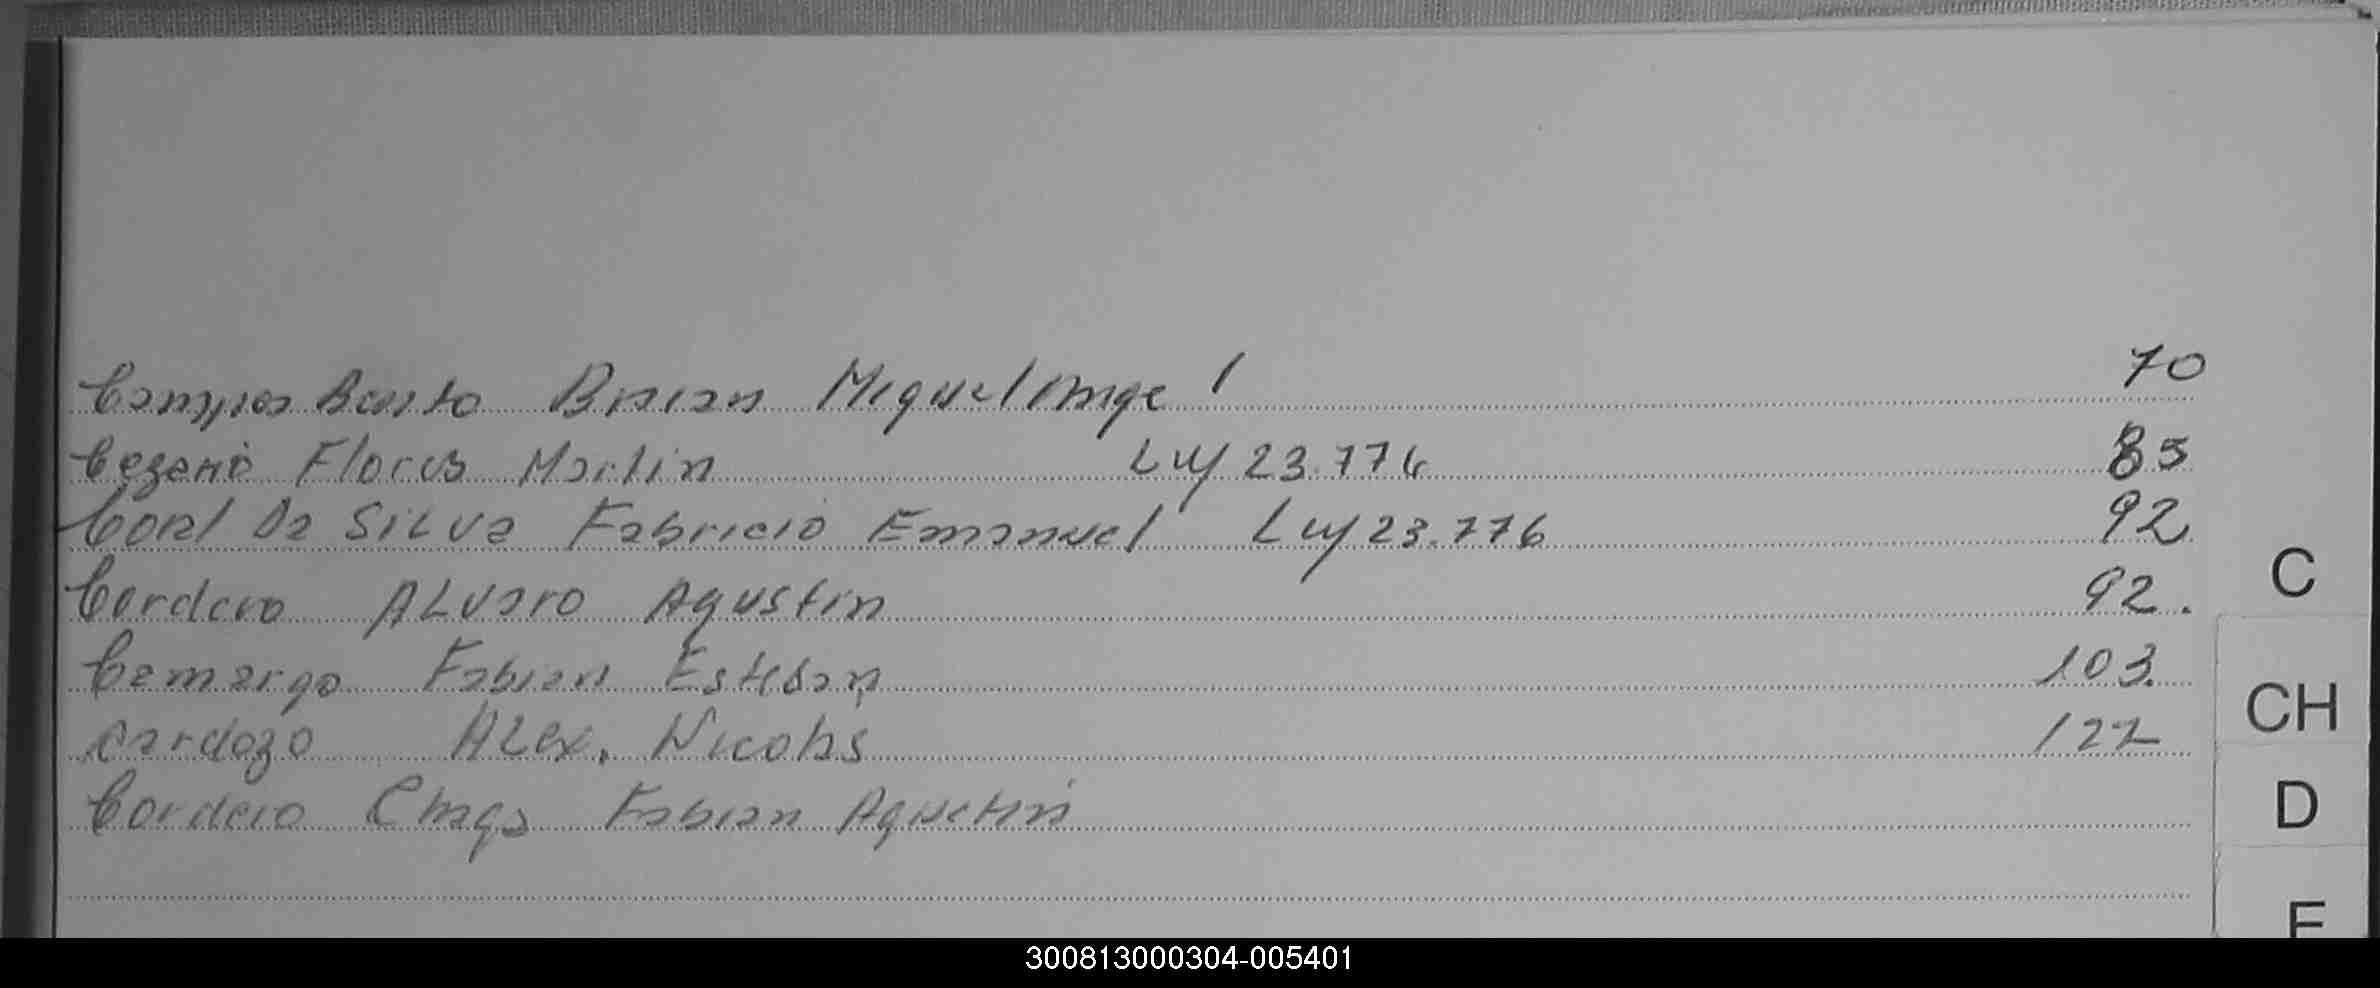 Campos Bento Brian Miguel Angel 70
Flores Martin Ley 23.776 85
Da Silva Fabricio Emanuel Ley 23.776 92
Cordero Alvaro Agustin 92.
C
Camargo Fabian Esteban 103.
CH
Cardozo Alex. Nicolas 122
D
Cordero Fabian Agustin
E
300813000304-005401